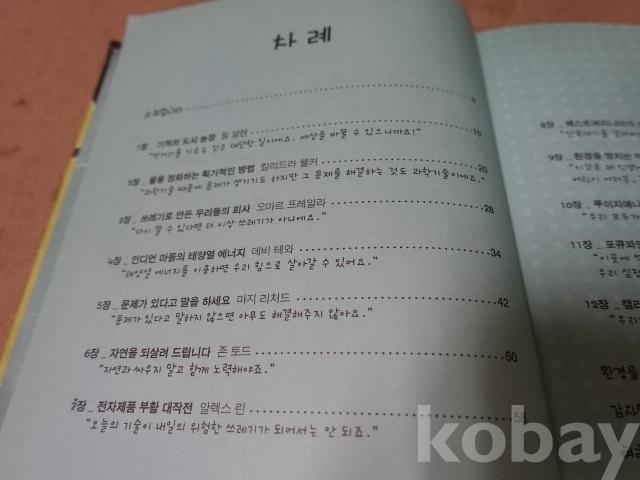 차례
6
1장_ 기적의 도시 농장 윌 알런 10
"먹거리를 기르는 것은 대단한 일이에요. 세상을 바꿀 수 있으니까요!"
2장_ 물을 정화하는 획기적인 방법 킬리드라 웰커 20
"과학기술 때문에 문제가 생기기도 하지만 그 문제를 해결하는 것도 과학기술이에요."
3장_ 쓰레기로 만든 우리들의 회사 오마르 프레일라 28
"다시 쓸 수 있다면 더 이상 쓰레기가 아니에요."
4장_ 인디언 마을의 태양열 에너지 데비 테와 34
"태양열 에너지를 이용하면 우리 힘으로 살아갈 수 있어요."
5장_ 문제가 있다고 말을 하세요 마지 리처드 42
"문제가 있다고 말하지 않으면 아무도 해결해주지 않아요."
6장_ 자연을 되살려 드립니다 존 토드 50
"자연과 싸우지 말고 함께 노력해야죠."
7장_ 전자제품 부활 대작전 알렉스 린 58
"오늘의 기술이 내일의 위험한 쓰레기가 되어서는 안 되죠."
8장_
9장_ 환경을 망치는
"이것은 왜
어린이 여러분,
10장_ 루이지애나
"우리 모두가
11장_ 포큐파인
"이곳에
우리 심장
12장_ 캘리
"우리
환경을
감사
kobay